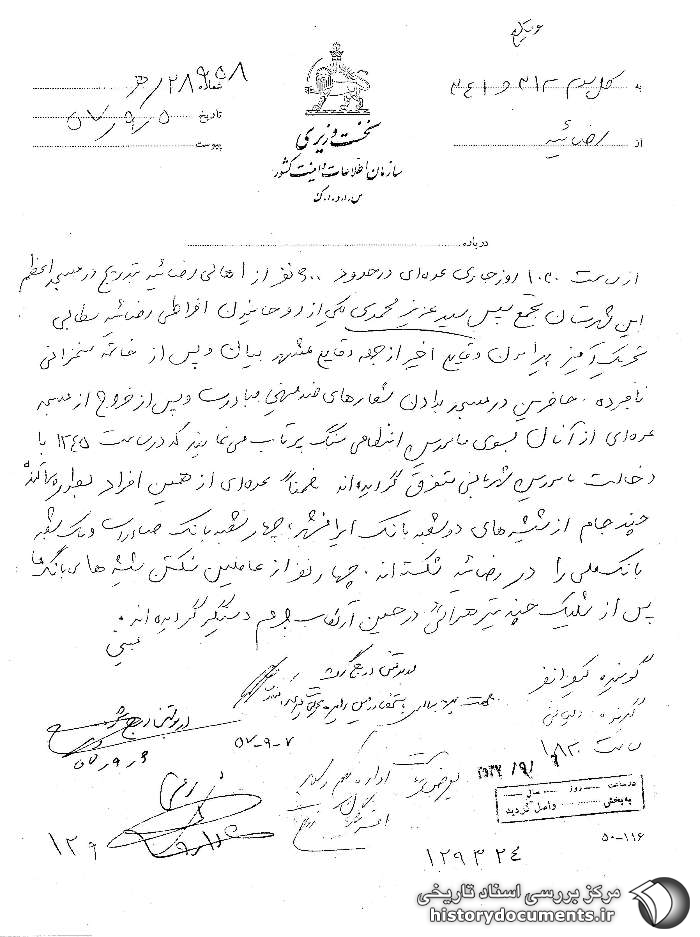 به کل سوم ۳۱۲ و ۳۴۱
از رضائیه
نخست وزیری
سازمان اطلاعات و امنیت کشور
س.ا.و.ا.ک
شماره ۲۸۹۵۸/هـ
تاریخ ۵۷/۹/۵
پیوست
درباره
از ساعت ۱۰۳۰ روز جاری عده‌ای در حدود ۶۰۰ نفر از اهالی رضائیه بتدریج در مسجد اعظم
این شهرستان تجمع سپس سید عزیز محمدی یکی از روحانیون افراطی رضائیه مطالبی
تحریک آمیز پیرامون وقایع اخیر از جمله وقایع مشهد بیان و پس از خاتمه سخنرانی
نامبرده، حاضرین در مسجد بدادن شعارهای ضد میهنی مبادرت و پس از خروج از مسجد
عده‌ای از آنان بسوی مامورین انتظامی سنگ پرتاب می‌نمایند که در ساعت ۱۲۴۵ با
دخالت مامورین شهربانی متفرق گردیده‌اند ضمناً عده‌ای از همین افراد بطور پراکنده
چند جام از شیشه‌های دو شعبه بانک ایرانشهر، چهار شعبه بانک صادرات و یک شعبه
بانک ملی را در رضائیه شکسته‌اند. چهار نفر از عاملین شکستن شیشه‌های بانک‌ها
پس از شلیک چند تیر هوائی در حین ارتکاب جرم دستگیر گردیده‌اند.
گوینده
گیرنده
ساعت ۱۸۳۰
۵۷-۹-۷
در بولتن درج شد
اداره
در ساعت روز سال
به بخش واصل گردید
۵۰-۱۱۶
۱۲۹۳۲۴
مرکز بررسی اسناد تاریخی
historydocuments.ir